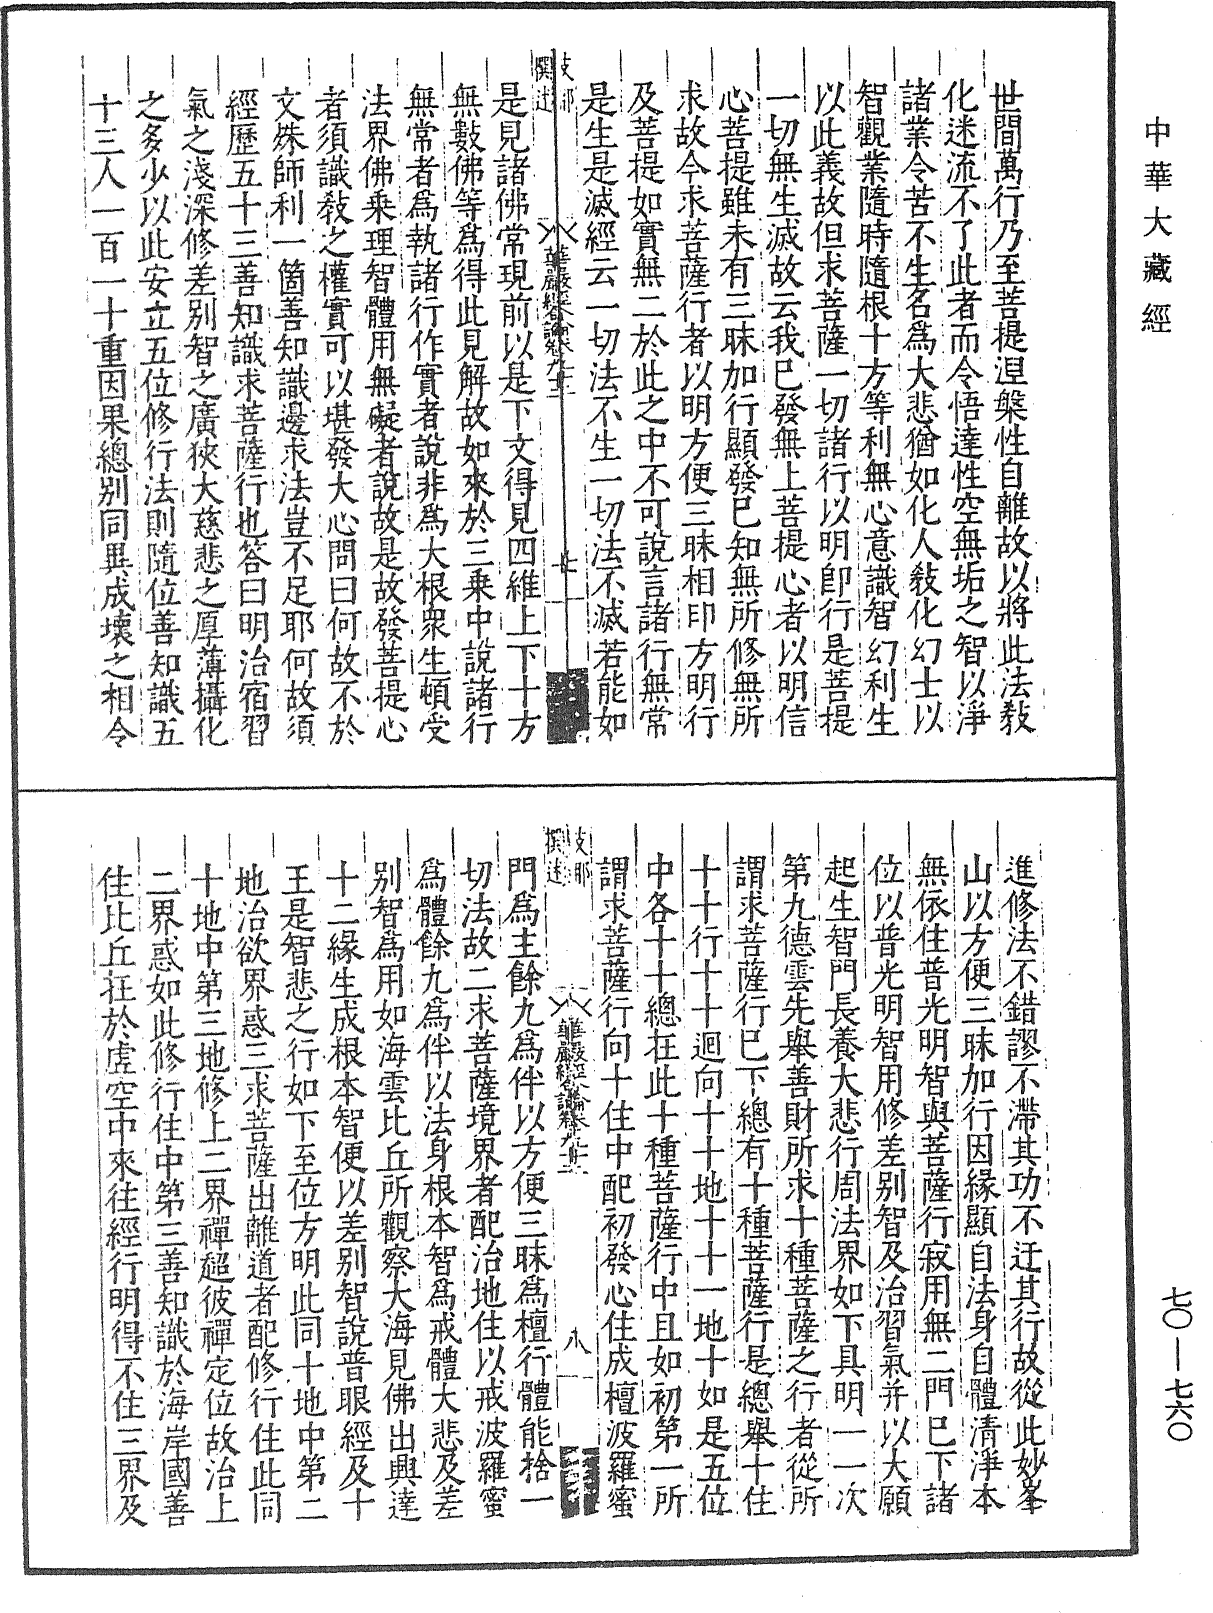 中華大藏經
七〇—七六〇
世間萬行乃至菩提涅槃性自離故以將此法教
化迷流不了此者而令悟達性空無垢之智以淨
諸業令苦不生名爲大悲猶如化人教化幻士以
智觀業隨時隨根十方等利無心意識智幻利生
以此義故但求菩薩一切諸行以明卽行是菩提
一切無生滅故云我已發無上菩提心者以明信
心菩提雖未有三昧加行顯發已知無所修無所
求故今求菩薩行者以明方便三昧相印方明行
及菩提如實無二於此之中不可說言諸行無常
是生是滅經云一切法不生一切法不滅若能如
支那
撰述
七
是見諸佛常現前以是下文得見四維上下十方
無數佛等爲得此見解故如來於三乘中說諸行
無常者爲執諸行作實者說非爲大根衆生頓受
法界佛乘理智體用無礙者說故是故發菩提心
者須識教之權實可以堪發大心問曰何故不於
文殊師利一箇善知識邊求法豈不足耶何故須
經歷五十三善知識求菩薩行也答曰明治宿習
氣之淺深修差別智之廣狹大慈悲之厚薄攝化
之多少以此安立五位修行法則隨位善知識五
十三人一百一十重因果總別同異成壞之相令
進修法不錯謬不滯其功不迂其行故從此妙峯
山以方便三昧加行因緣顯自法身自體清淨本
無依住普光明智與菩薩行寂用無二門已下諸
位以普光明智用修差別智及治習氣并以大願
起生智門長養大悲行周法界如下具明一一次
第九德雲先舉善財所求十種菩薩之行者從所
謂求菩薩行已下總有十種菩薩行是總舉十住
十十行十十迴向十十地十十一地十如是五位
中各十十總在此十種菩薩行中且如初第一所
謂求菩薩行向十住中配初發心住成檀波羅蜜
支那
撰述
八
門爲主餘九爲伴以方便三昧爲檀行體能捨一
切法故二求菩薩境界者配治地住以戒波羅蜜
爲體餘九爲伴以法身根本智爲戒體大悲及差
別智爲用如海雲比丘所觀察大海見佛出興達
十二緣生成根本智便以差別智說普眼經及十
王是智悲之行如下至位方明此同十地中第二
地治欲界惑三求菩薩出離道者配修行住此同
十地中第三地修上二界禪超彼禪定位故治上
二界惑如此修行住中第三善知識於海岸國善
住比丘在於虛空中來往經行明得不住三界及